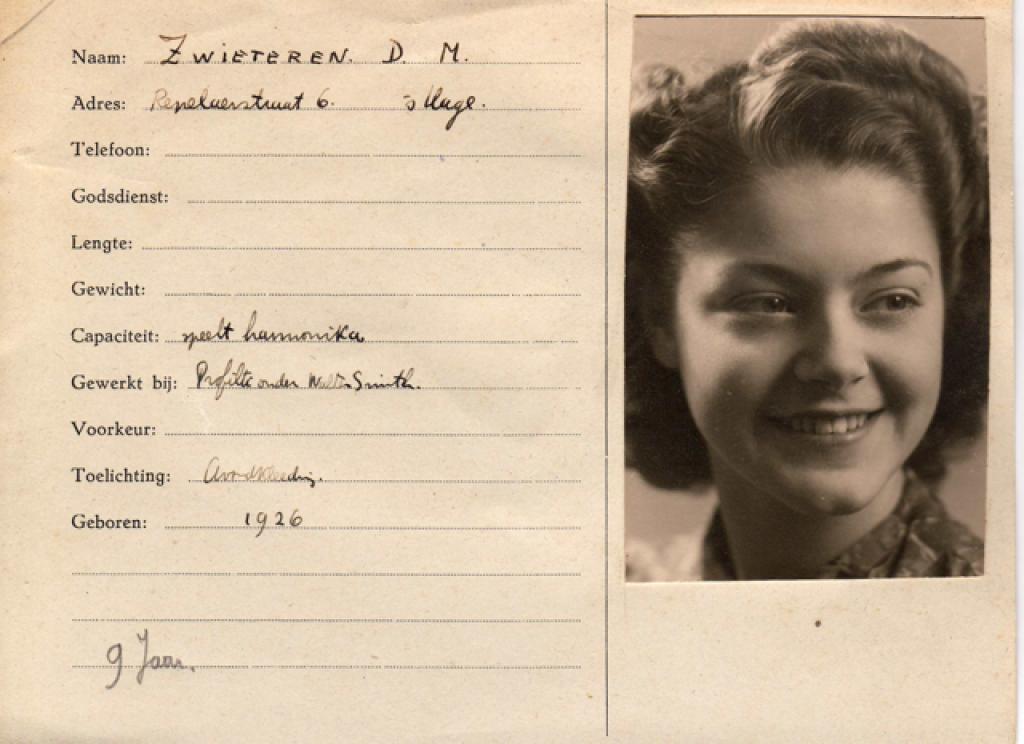 Naam: ZWIETEREN. D. M.
Adres: Repelaerstraat 6. 's Hage.
Telefoon:
Godsdienst:
Lengte:
Gewicht:
Capaciteit: speelt harmonika
Gewerkt bij: Profilti onder Walter Smith.
Voorkeur:
Toelichting: Avondkleeding.
Geboren: 1926
9 Jaar.